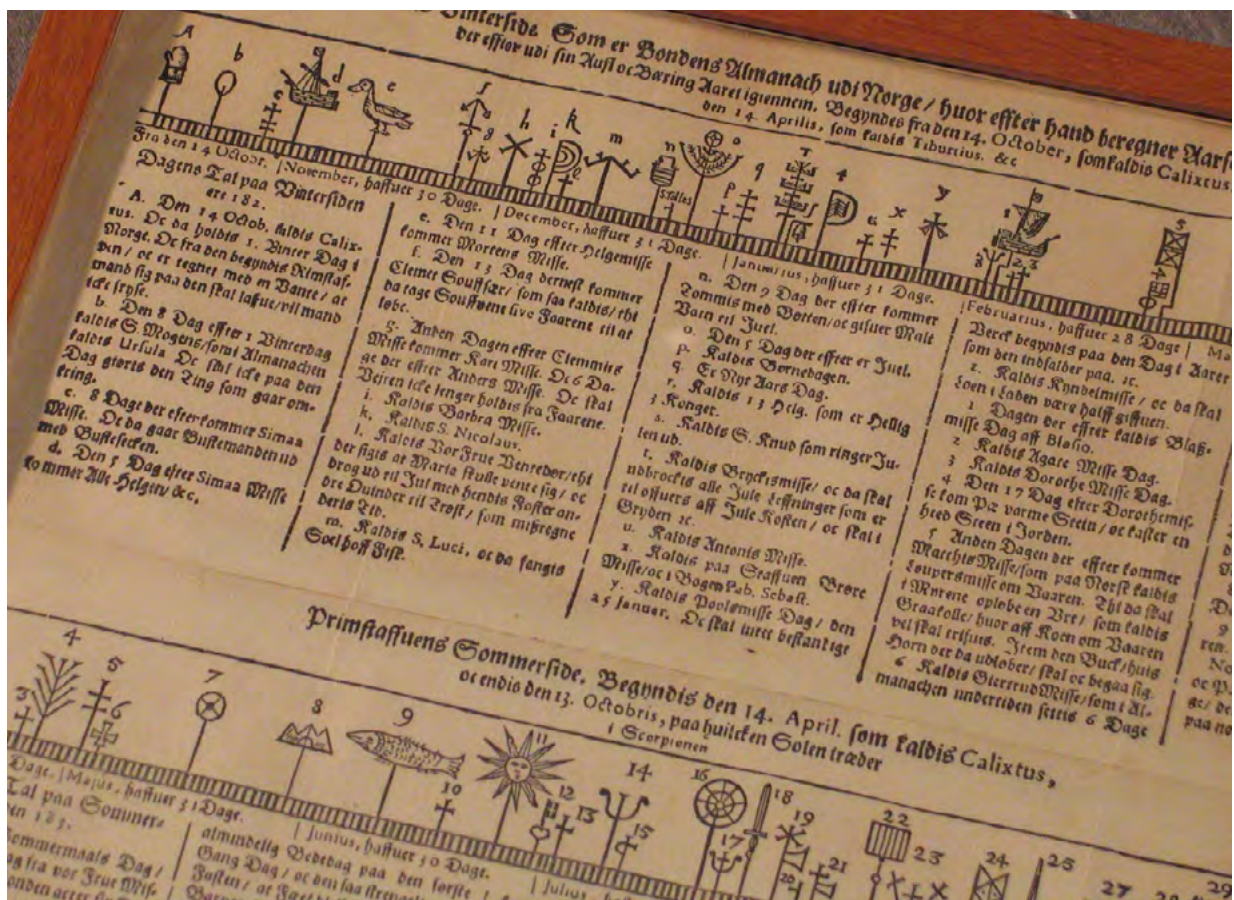 Vinterside. Som er Bondens Almanach udi Norge / huor effter hand beregner
der effter udi sin Aufl oc Bæring Aaret igiennem. Begyndes fra den 14. October, som kaldis Calixtus,
den 14. Aprilis, som kaldis Tiburtius. &c
A b c d e f g h i k l m n o p q r s t u x y
Fra den 14 Octobr. | November, haffuer 30 Dage. | December, haffuer 31 Dage. | Januarius, haffuer 31 Dage. | Februarius, haffuer 28 Dage | Ma
Dagens Tal paa Vintersiden
ere 182.
A. Den 14 Octob. kaldis Calix-
tus. Oc da holdis 1. Vinter Dag i
Norge. Oc fra den begyndis Rimstaf-
ven / oc er tegnet med en Vante / at
mand sig paa den skal laffue / vil mand
icke fryse.
b. Den 8 Dag effter 1 Vinterdag
kaldis S. Mogens / som i Almanachen
kaldis Ursula Oc skal icke paa den
Dag giøris den Ting som gaar om-
kring.
c. 8 Dage der efter kommer Simaa
Misse. Oc da gaar Bustemanden ud
med Bustesecken.
d. Den 5 Dag efter Simaa Misse
kommer Alle Helgen &c.
e. Den 11 Dag effter Helgemisse
kommer Mortens Misse.
f. Den 13 Dag dernest kommer
Clemet / som saa kaldis / thi
da tage live Faarene til at
løbe.
g. Anden Dagen effter Clemmits
Misse kommer Kari Misse. Oc 6 Da-
ge der effter Anders Misse. Oc skal
Veiren icke lenger holdis fra Faarene.
i. Kaldis Barbra Misse.
k. Kaldis S. Nicolaus.
l. Kaldis Vor Frue Ventedør / thi
der sigis at Maria skulle vente sig / oc
drog ud til Jul med hendis Foster an-
dre Quinder til Trøst / som
deris Tid.
m. Kaldis S. Luci, oc da fangis
Fisk.
n. Den 9 Dag der effter kommer
Tommis med Bøtten / oc gifuer Malt
Varn til Juel.
o. Den 5 Dag der effter er Juel.
p. Kaldis Børnedagen.
q. Er Nyt Aars Dag.
r. Kaldis 13 Helg. som er Hellig
3 Konger.
s. Kaldis S. Knud som ringer Ju-
len ud.
t. Kaldis Bryckismisse / oc da skal
udbrockis alle Jule Leffninger som er
til offuers aff Jule Kosten / oc skal i
Gryden &c.
u. Kaldis Antonis Misse.
x. Kaldis paa Staffuen Brøre
Misse / oc i Bogen Fab. Sebast.
y. Kaldis Poolsmisse Dag / den
25 Januar. Oc skal intet bestantige
Verck begyndis paa den Dag i Aaret
som den indfalder paa. &c.
z. Kaldis Kyndelmisse / oc da skal
Loen i Laden være halff giffuen.
1 Dagen der effter kaldis Blaß-
misse Dag aff Blasio.
2 Kaldis Agate Misse Dag.
3 Kaldis Dorothe Misse Dag.
4 Den 17 Dag efter Dorothemis-
se kom Pær varme Steen / oc kaster en
heed Steen i Jorden.
5 Anden Dagen der effter kommer
Matthis Misse / som paa Norsk kaldis
Loupersmisse om Vaaren. Thi da skal
i Myrene opløbe en Urt / som kaldis
Graakolle / huor aff Koen om Vaaren
vel skal trifuis. Item den Buck / huis
Horn der da udløber / skal oc begaa sig.
6 Kaldis Giertrud Misse / som i Al-
manachen underriden settis 6 Dage
Primstaffuens Sommerside. Begyndis den 14. April. som kaldis Calixtus,
oc endis den 13. Octobris, paa huilcken Solen træder
i Scorpionen
3 4 5 6 7 8 9 10 11 12 13 14 15 16 17 18 19 20 21 22 23 24 25 27 29
Dage. | Majus, haffuer 31 Dage. | Junius, haffuer 30 Dage. | Julius,
Tal paa Sommer-
en 183.
Sommermaals Dag /
fra vor Frue Mis-
almindelig Bededag paa den første
Gang Dag / oc den saa
Fasten / at